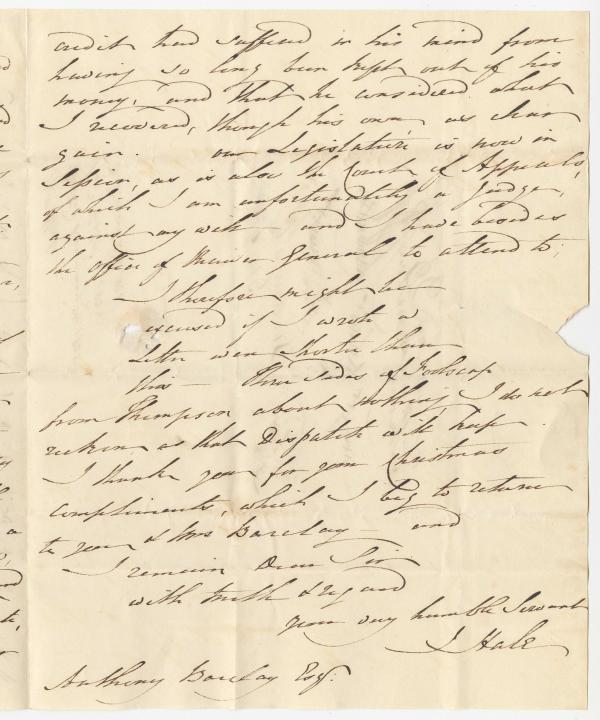 credit had suffered in his mind from
having so long been kept out of his
money, and that he considered what
I recovered, though his own, as clear
gain. our Legislature is now in
Session, as is also the Court of Appeals,
of which I am unfortunately a Judge,
against my will and I have besides
the office of Receiver General to attend to;
I therefore might be
excused if I wrote a
Letter even shorter than
this - Three sides of Foolscap
from Thompson about nothing I do not
reckon as that Dispatch will keep.
I thank you for your Christmas
compliments, which I beg to return
to you & Mrs Barclay - and
I remain Dear Sir
with truth & regard
your very humble Servant
J Hale
Anthony Barclay Esqr.